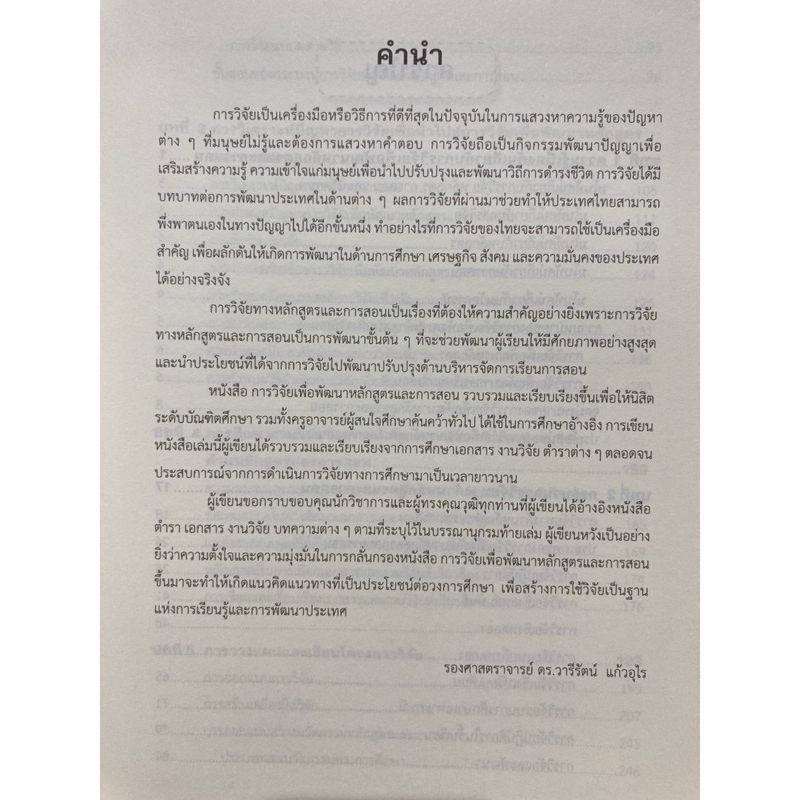 คำนำ
การวิจัยเป็นเครื่องมือหรือวิธีการที่ดีที่สุดในปัจจุบันในการแสวงหาความรู้ของปัญหา
ต่าง ๆ ที่มนุษย์ไม่รู้และต้องการแสวงหาคำตอบ การวิจัยถือเป็นกิจกรรมพัฒนาปัญญาเพื่อ
เสริมสร้างความรู้ ความเข้าใจแก่มนุษย์เพื่อนำไปปรับปรุงและพัฒนาวิถีการดำรงชีวิต การวิจัยได้มี
บทบาทต่อการพัฒนาประเทศในด้านต่าง ๆ ผลการวิจัยที่ผ่านมาช่วยทำให้ประเทศไทยสามารถ
พึ่งพาตนเองในทางปัญญาไปได้อีกขั้นหนึ่ง ทำอย่างไรที่การวิจัยของไทยจะสามารถใช้เป็นเครื่องมือ
สำคัญ เพื่อผลักดันให้เกิดการพัฒนาในด้านการศึกษา เศรษฐกิจ สังคม และความมั่นคงของประเทศ
ได้อย่างจริงจัง
การวิจัยทางหลักสูตรและการสอนเป็นเรื่องที่ต้องให้ความสำคัญอย่างยิ่งเพราะการวิจัย
ทางหลักสูตรและการสอนเป็นการพัฒนาขั้นต้น ๆ ที่จะช่วยพัฒนาผู้เรียนให้มีศักยภาพอย่างสูงสุด
และนำประโยชน์ที่ได้จากการวิจัยไปพัฒนาปรับปรุงด้านบริหารจัดการเรียนการสอน
หนังสือ การวิจัยเพื่อพัฒนาหลักสูตรและการสอน รวบรวมและเรียบเรียงขึ้นเพื่อให้นิสิต
ระดับบัณฑิตศึกษา รวมทั้งครูอาจารย์ผู้สนใจศึกษาค้นคว้าทั่วไป ได้ใช้ในการศึกษาอ้างอิง การเขียน
หนังสือเล่มนี้ผู้เขียนได้รวบรวมและเรียบเรียงจากการศึกษาเอกสาร งานวิจัย ตำราต่าง ๆ ตลอดจน
ประสบการณ์จากการดำเนินการวิจัยทางการศึกษามาเป็นเวลายาวนาน
ผู้เขียนขอกราบขอบคุณนักวิชาการ และผู้ทรงคุณวุฒิทุกท่านที่ผู้เขียนได้อ้างอิงหนังสือ
ตำรา เอกสาร งานวิจัย บทความต่าง ๆ ตามที่ระบุไว้ในบรรณานุกรมท้ายเล่ม ผู้เขียนหวังเป็นอย่าง
ยิ่งว่าความตั้งใจและความมุ่งมั่นในการกลั่นกรองหนังสือ การวิจัยเพื่อพัฒนาหลักสูตรและการสอน
ขึ้นมาจะทำให้เกิดแนวคิดแนวทางที่เป็นประโยชน์ต่อวงการศึกษา เพื่อสร้างการใช้วิจัยเป็นฐาน
แห่งการเรียนรู้และการพัฒนาประเทศ
รองศาสตราจารย์ ดร.วารีรัตน์ แก้วอุไร